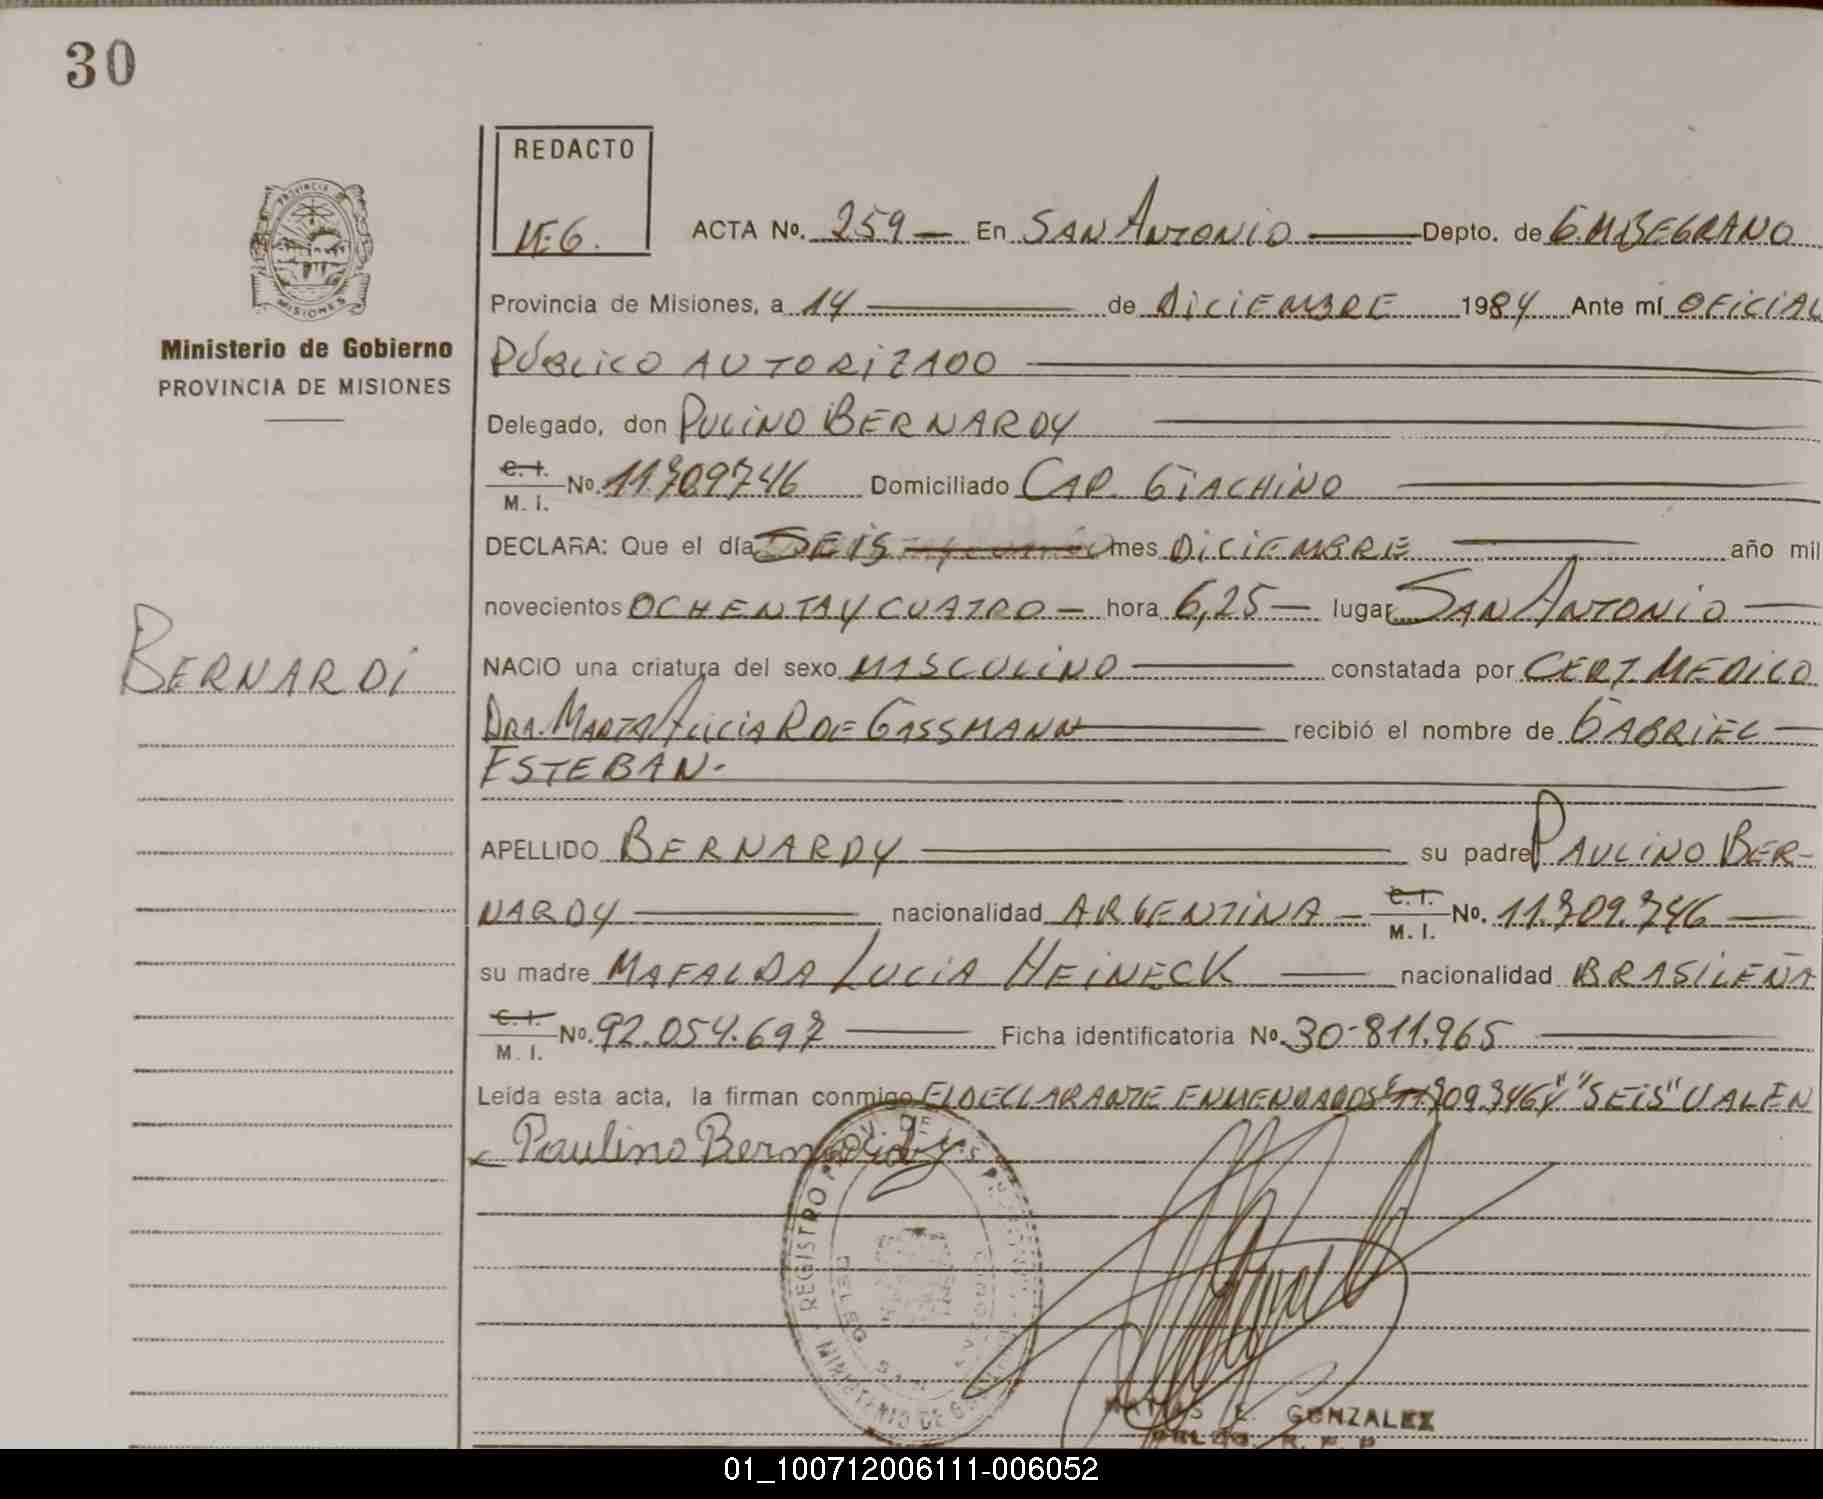 30
REDACTO
M.G.
ACTA No. 259 — En SAN ANTONIO — Depto. de G.M.BELGRANO
Provincia de Misiones, a 14 — de DICIEMBRE 1984 Ante mí OFICIAL
PÚBLICO AUTORIZADO
PROVINCIA DE MISIONES
Ministerio de Gobierno
PROVINCIA DE MISIONES
Delegado, don PULINO BERNARDY
C. I.
M. I. No. 11.709746 Domiciliado CAP. GIACHINO
DECLARA: Que el día SEIS mes DICIEMBRE — año mil
novecientos OCHENTA Y CUATRO — hora 6,25 — lugar SAN ANTONIO —
BERNARDI
NACIO una criatura del sexo MASCULINO — constatada por CERT. MEDICO
DRA. MARTA ALICIA R DE GASSMANN — recibió el nombre de GABRIEL —
ESTEBAN.
APELLIDO BERNARDY — su padre PAULINO BER-
NARDY — nacionalidad ARGENTINA — C. I.
M. I. No. 11.709.746 —
su madre MAFALDA LUCIA HEINECK — nacionalidad BRASILEÑA
C. I.
M. I. No. 92.054.697 — Ficha identificatoria No. 30-811.965 —
Leída esta acta, la firman conmigo EL DECLARANTE ENMENDADOS "11709.746" Y "SEIS" VALEN
Paulino Bernardy
REGISTRO PROV. DE LAS PERSONAS
DELEG. SAN ANTONIO
MINISTERIO DE GOBIERNO
MATIAS E. GONZALEZ
R. P. P.
01_100712006111-006052